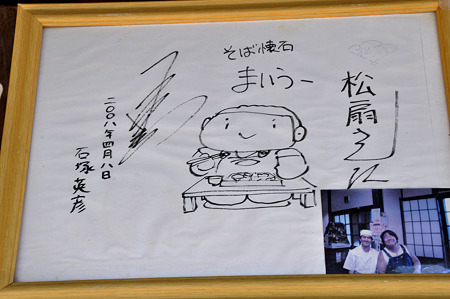 松扇さん江
そば懐石
まいうー
二〇〇八年四月八日
石塚英彦